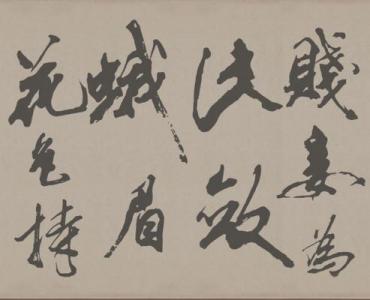 賤妾為
斂
蛾眉
花色捧